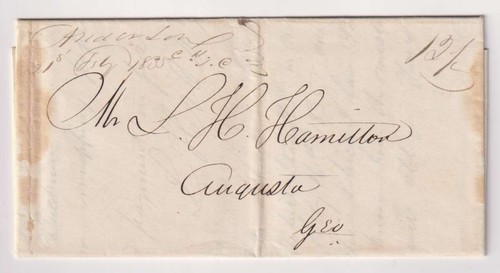 Anderson C.H. S.C
21st Feby 1835
12½
Mr L. H. Hamilton
Augusta
Geo